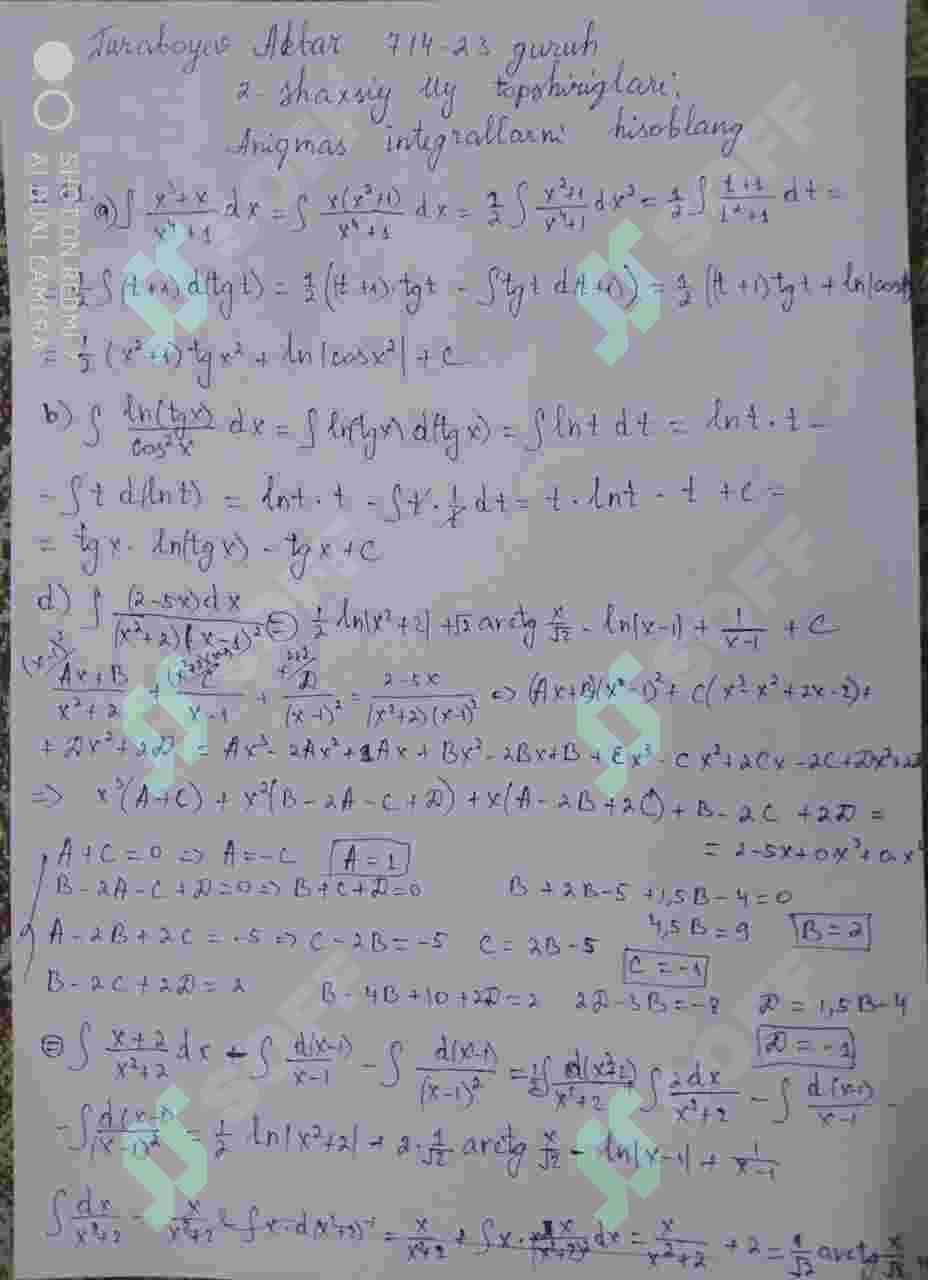 Turaboyev Akbar 714-23 guruh
2-shaxsiy Uy topshiriqlari.
Aniqmas integrallarni hisoblang
a) ∫ (x³+x)/(x⁴+1) dx = ∫ x(x²+1)/(x⁴+1) dx = 1/2 ∫ (x²+1)/(x⁴+1) dx² = 1/2 ∫ (t+1)/(t²+1) dt =
= 1/2 ∫ (t+1) d(tg t) = 1/2 (t+1)·tgt - ∫ tgt d(t+1)) = 1/2 (t+1) tgt + ln|cost
= 1/2 (x²+1) tgx² + ln|cosx²| + C
b) ∫ ln(tgx)/cos²x dx = ∫ ln(tgx) d(tgx) = ∫ lnt dt = lnt·t -
- ∫ t d(lnt) = lnt·t - ∫ t·1/t dt = t·lnt - t + C =
= tgx · ln(tgx) - tgx + C
d) ∫ (2-5x)dx/((x²+2)(x-1)²) = 1/2 ln|x²+2| + √2 arctg x/√2 - ln|x-1| + 1/(x-1) + C
(Ax+B)/(x²+2) + C/(x-1) + D/(x-1)² = (2-5x)/((x²+2)(x-1)²) => (Ax+B)(x-1)² + C(x³-x²+2x-2)+
+ Dx²+2D = Ax³-2Ax²+1Ax + Bx²-2Bx+B + Cx³-Cx²+2Cx-2C+Dx²+2D
=> x³(A+C) + x²(B-2A-C+D) + x(A-2B+2C) + B-2C+2D =
= 2-5x+0x³+0x²
A+C=0 => A=-C A=1
B-2A-C+D=0 => B+C+D=0 B+2B-5+1,5B-4=0
A-2B+2C=-5 => C-2B=-5 C=2B-5 4,5B=9 B=2
C=-1
B-2C+2D=2 B-4B+10+2D=2 2D-3B=-8 D=1,5B-4
D=-1
= ∫ (x+2)/(x²+2) dx - ∫ d(x-1)/(x-1) - ∫ d(x-1)/(x-1)² = 1/2 ∫ d(x²+2)/(x²+2) ∫ 2dx/(x²+2) - ∫ d(x-1)/(x-1) -
- ∫ d(x-1)/(x-1)² = 1/2 ln|x²+2| + 2·1/√2 arctg x/√2 - ln|x-1| + 1/(x-1)
∫ dx/(x²+2) = x/(x²+2) - ∫ x·d(x²+2)⁻¹ = x/(x²+2) + ∫ dx = x/(x²+2) + 2 = 1/√2 arctg x/√2
SHOT ON REDMI 7
AI DUAL CAMERA
SOFF
SOFF
SOFF
SOFF
SOFF
SOFF